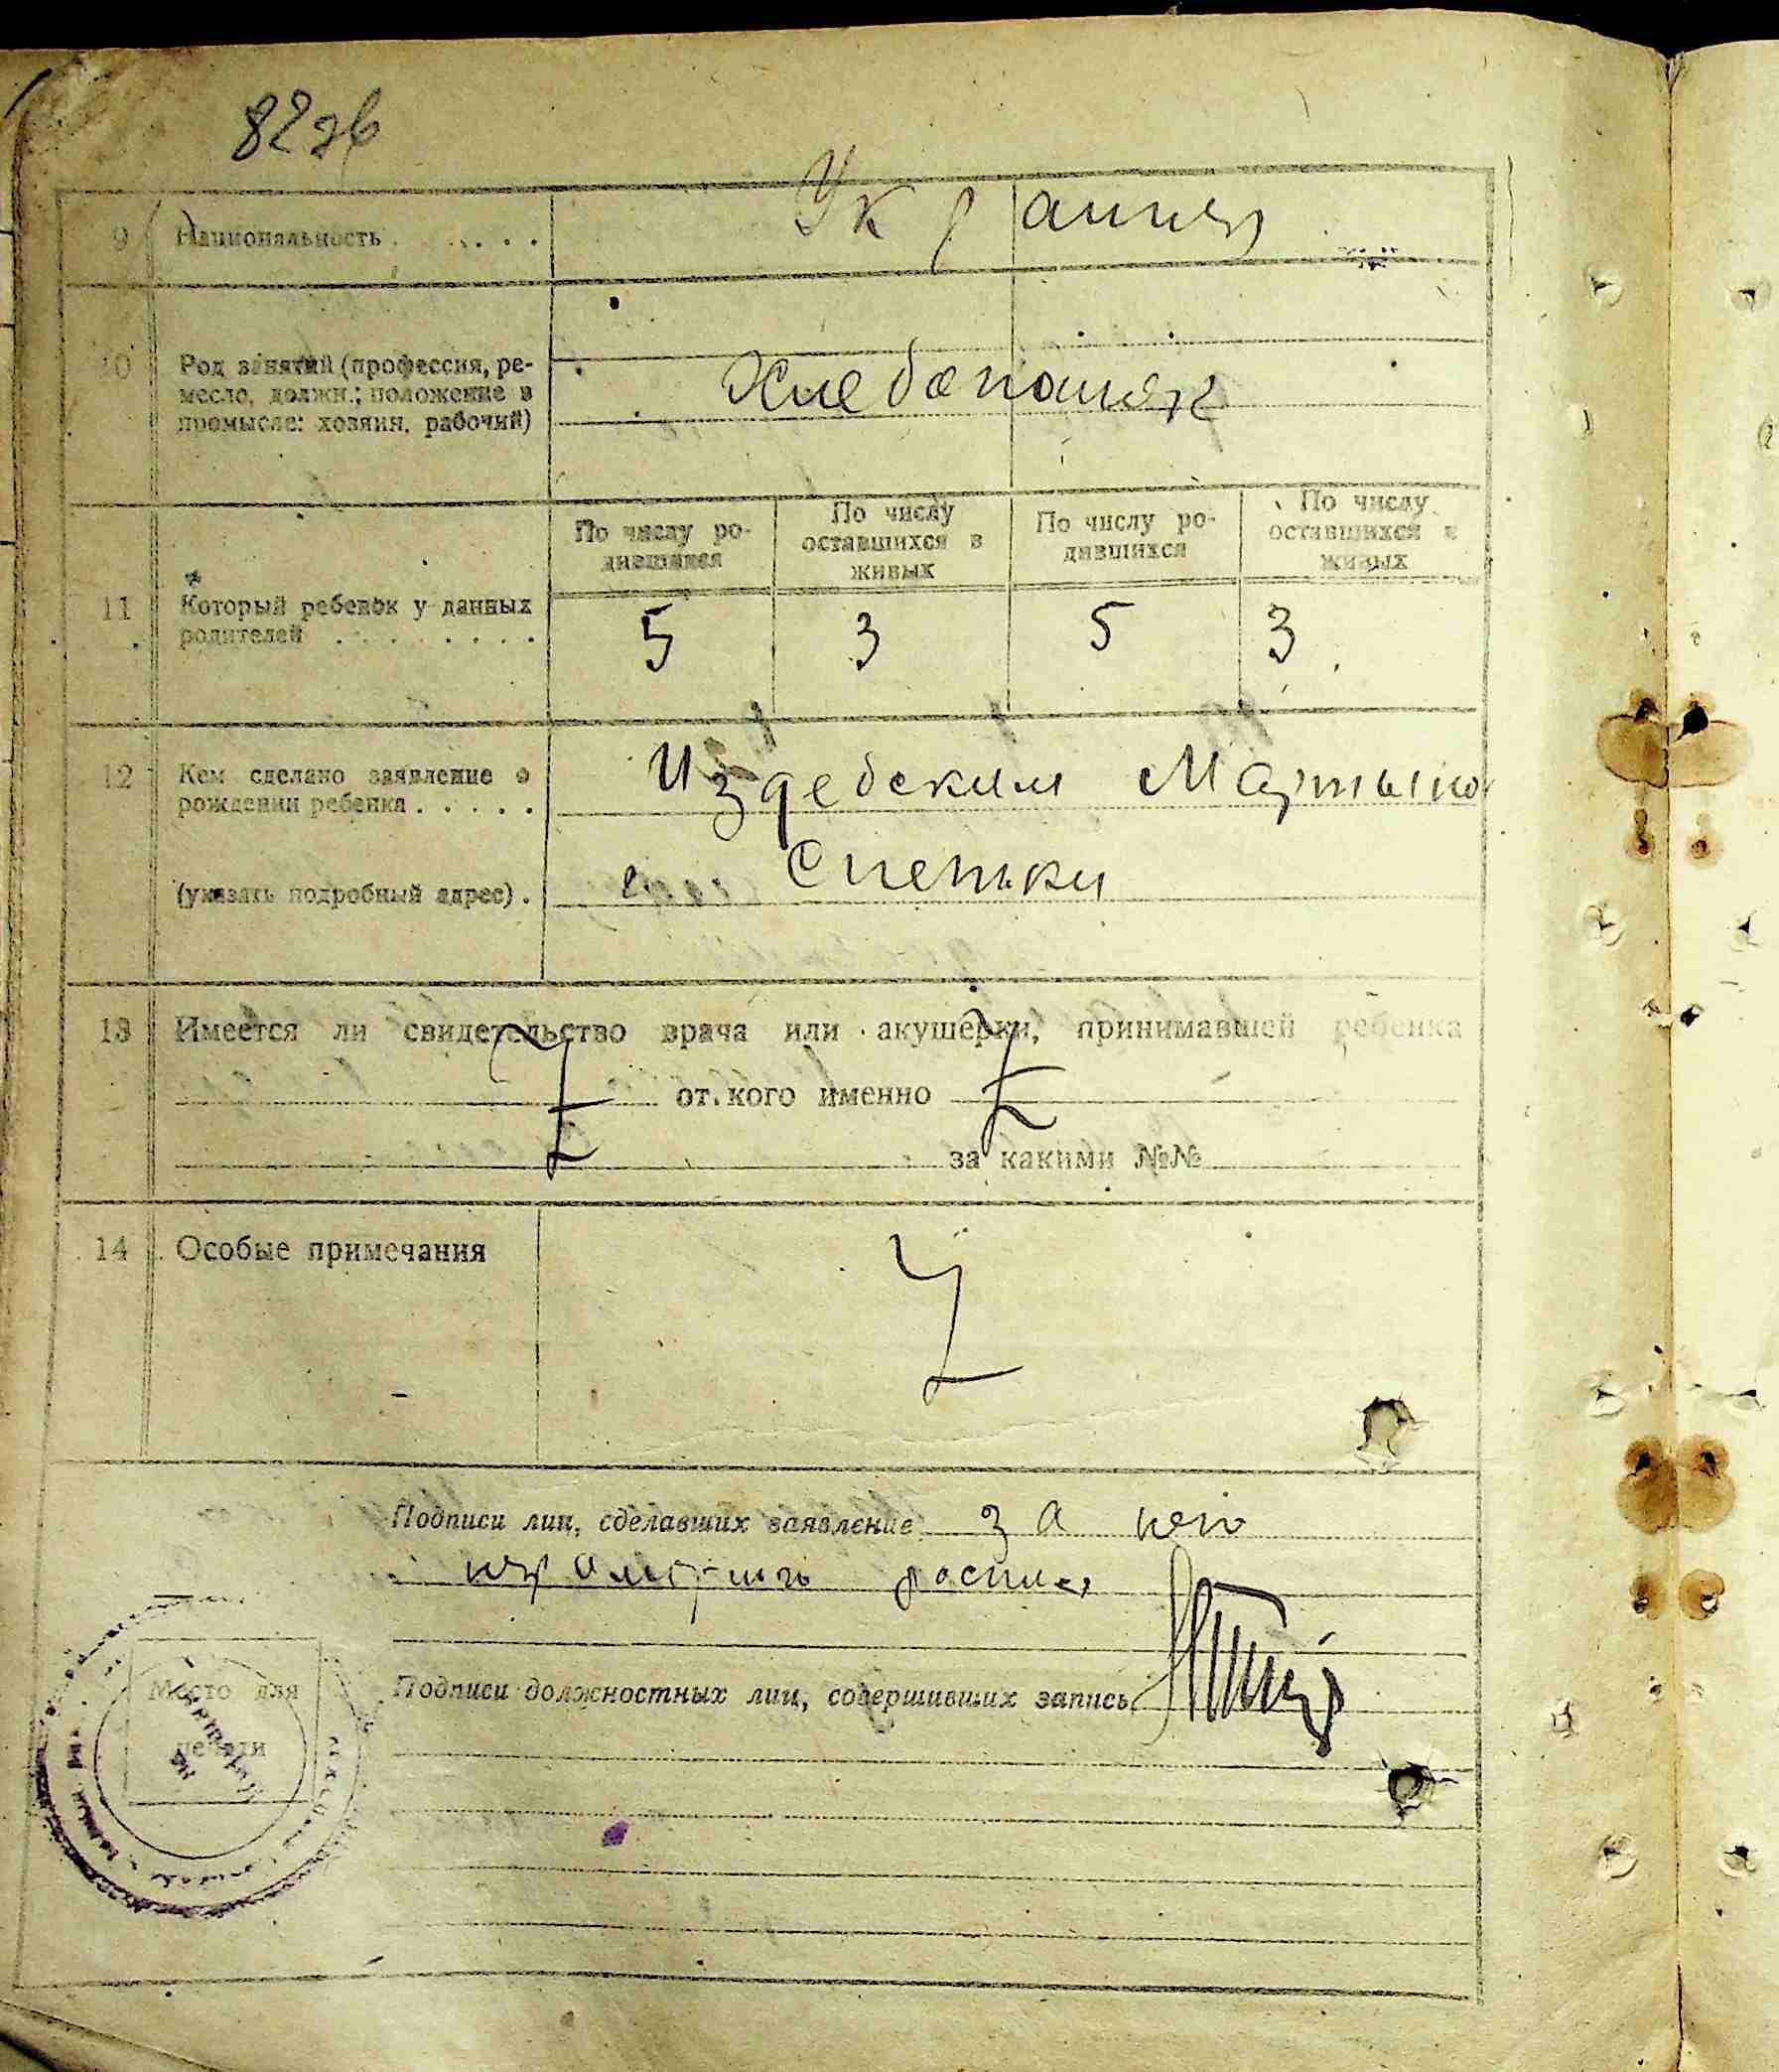 82зв
9 Национальность . . . . . Украинцы
10 Род занятий (профессия, ре-
месло, должн.; положение в
промысле: хозяин, рабочий)
Хлебопашец
По числу ро-
дившихся
По числу
оставшихся в
живых
По числу ро-
дившихся
По числу
оставшихся в
живых
11 Который ребенок у данных
родителей . . . . . . . .
5 3 5 3
12 Кем сделано заявление о
рождении ребенка . . . . .
Издебским Мартыно
(указать подробный адрес) .
с.
13 Имеется ли свидетельство врача или акушерки, принимавшей ребенка
от кого именно
за какими №№
14 Особые примечания
Подписи лиц, сделавших заявление за него
неграмотного
Подписи должностных лиц, совершивших запись
Место для
печати